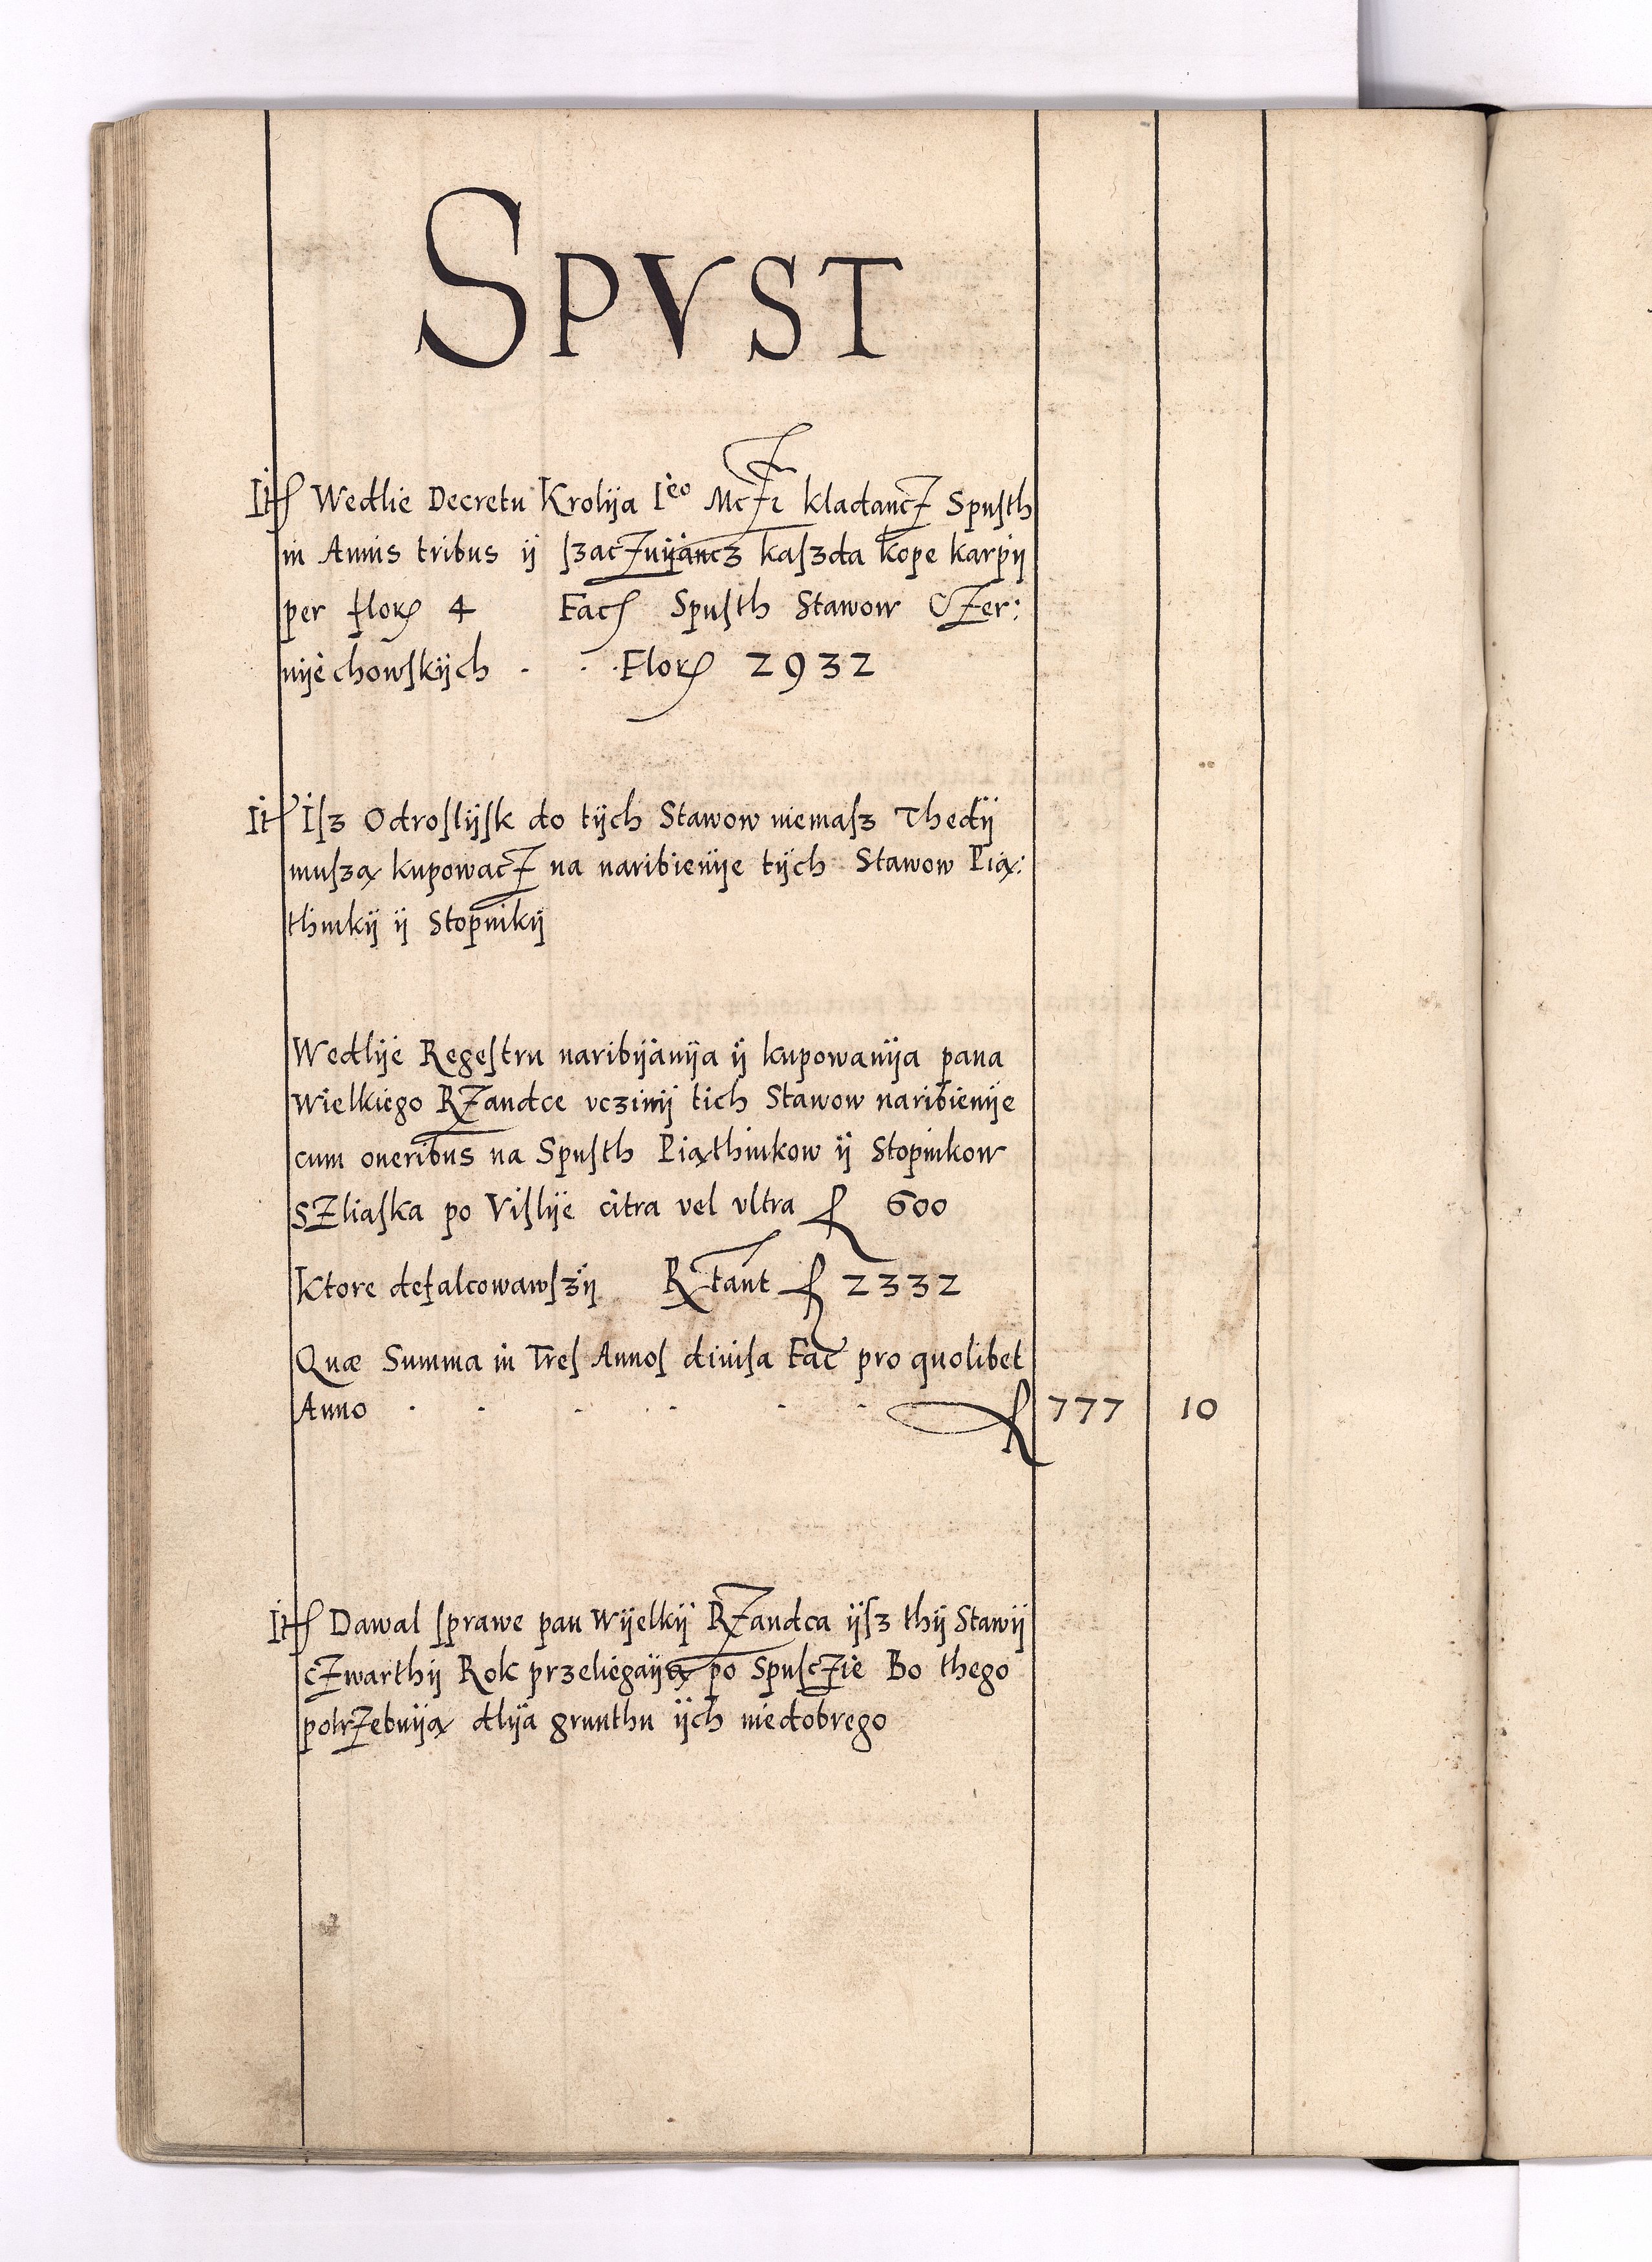 SPVST
It Wedlie Decretu Krolya Ieo MczI kladancz Spusth
in Annis tribus ÿ szaczuÿancz kaszda kope karpÿ
per flor 4 Fac Spusth Stawow Czer:
nÿechowskÿch . . . Flor 2932
It Isz Odroslÿsk do tÿch Stawow niemasz Thedÿ
musza kupowacz na naribienÿe tÿch Stawow Pią:
thnikÿ ÿ Stopnikÿ
Wedlÿe Regestru naribÿanÿa ÿ kupowanÿa pana
Wielkiego Rzandce vczinÿ tich Stawow naribienÿe
cum oneribus na Spusth Piąthnikow ÿ Stopnikow
Szliaska po Vislÿe citra vel vltra f 600
Ktore defalcowawszÿ Rtant f 2332
Quæ Summa in Tres Annos diuisa Fac pro quolibet
Anno . . . . . . . f 777 10
It Dawal sprawe pan Wÿelkÿ Rzandca ÿsz thÿ Stawÿ
czwarthÿ Rok przeliegaÿą po Spusczie Bo thego
potrzebuÿą dlÿa grunthu ÿch niedobrego